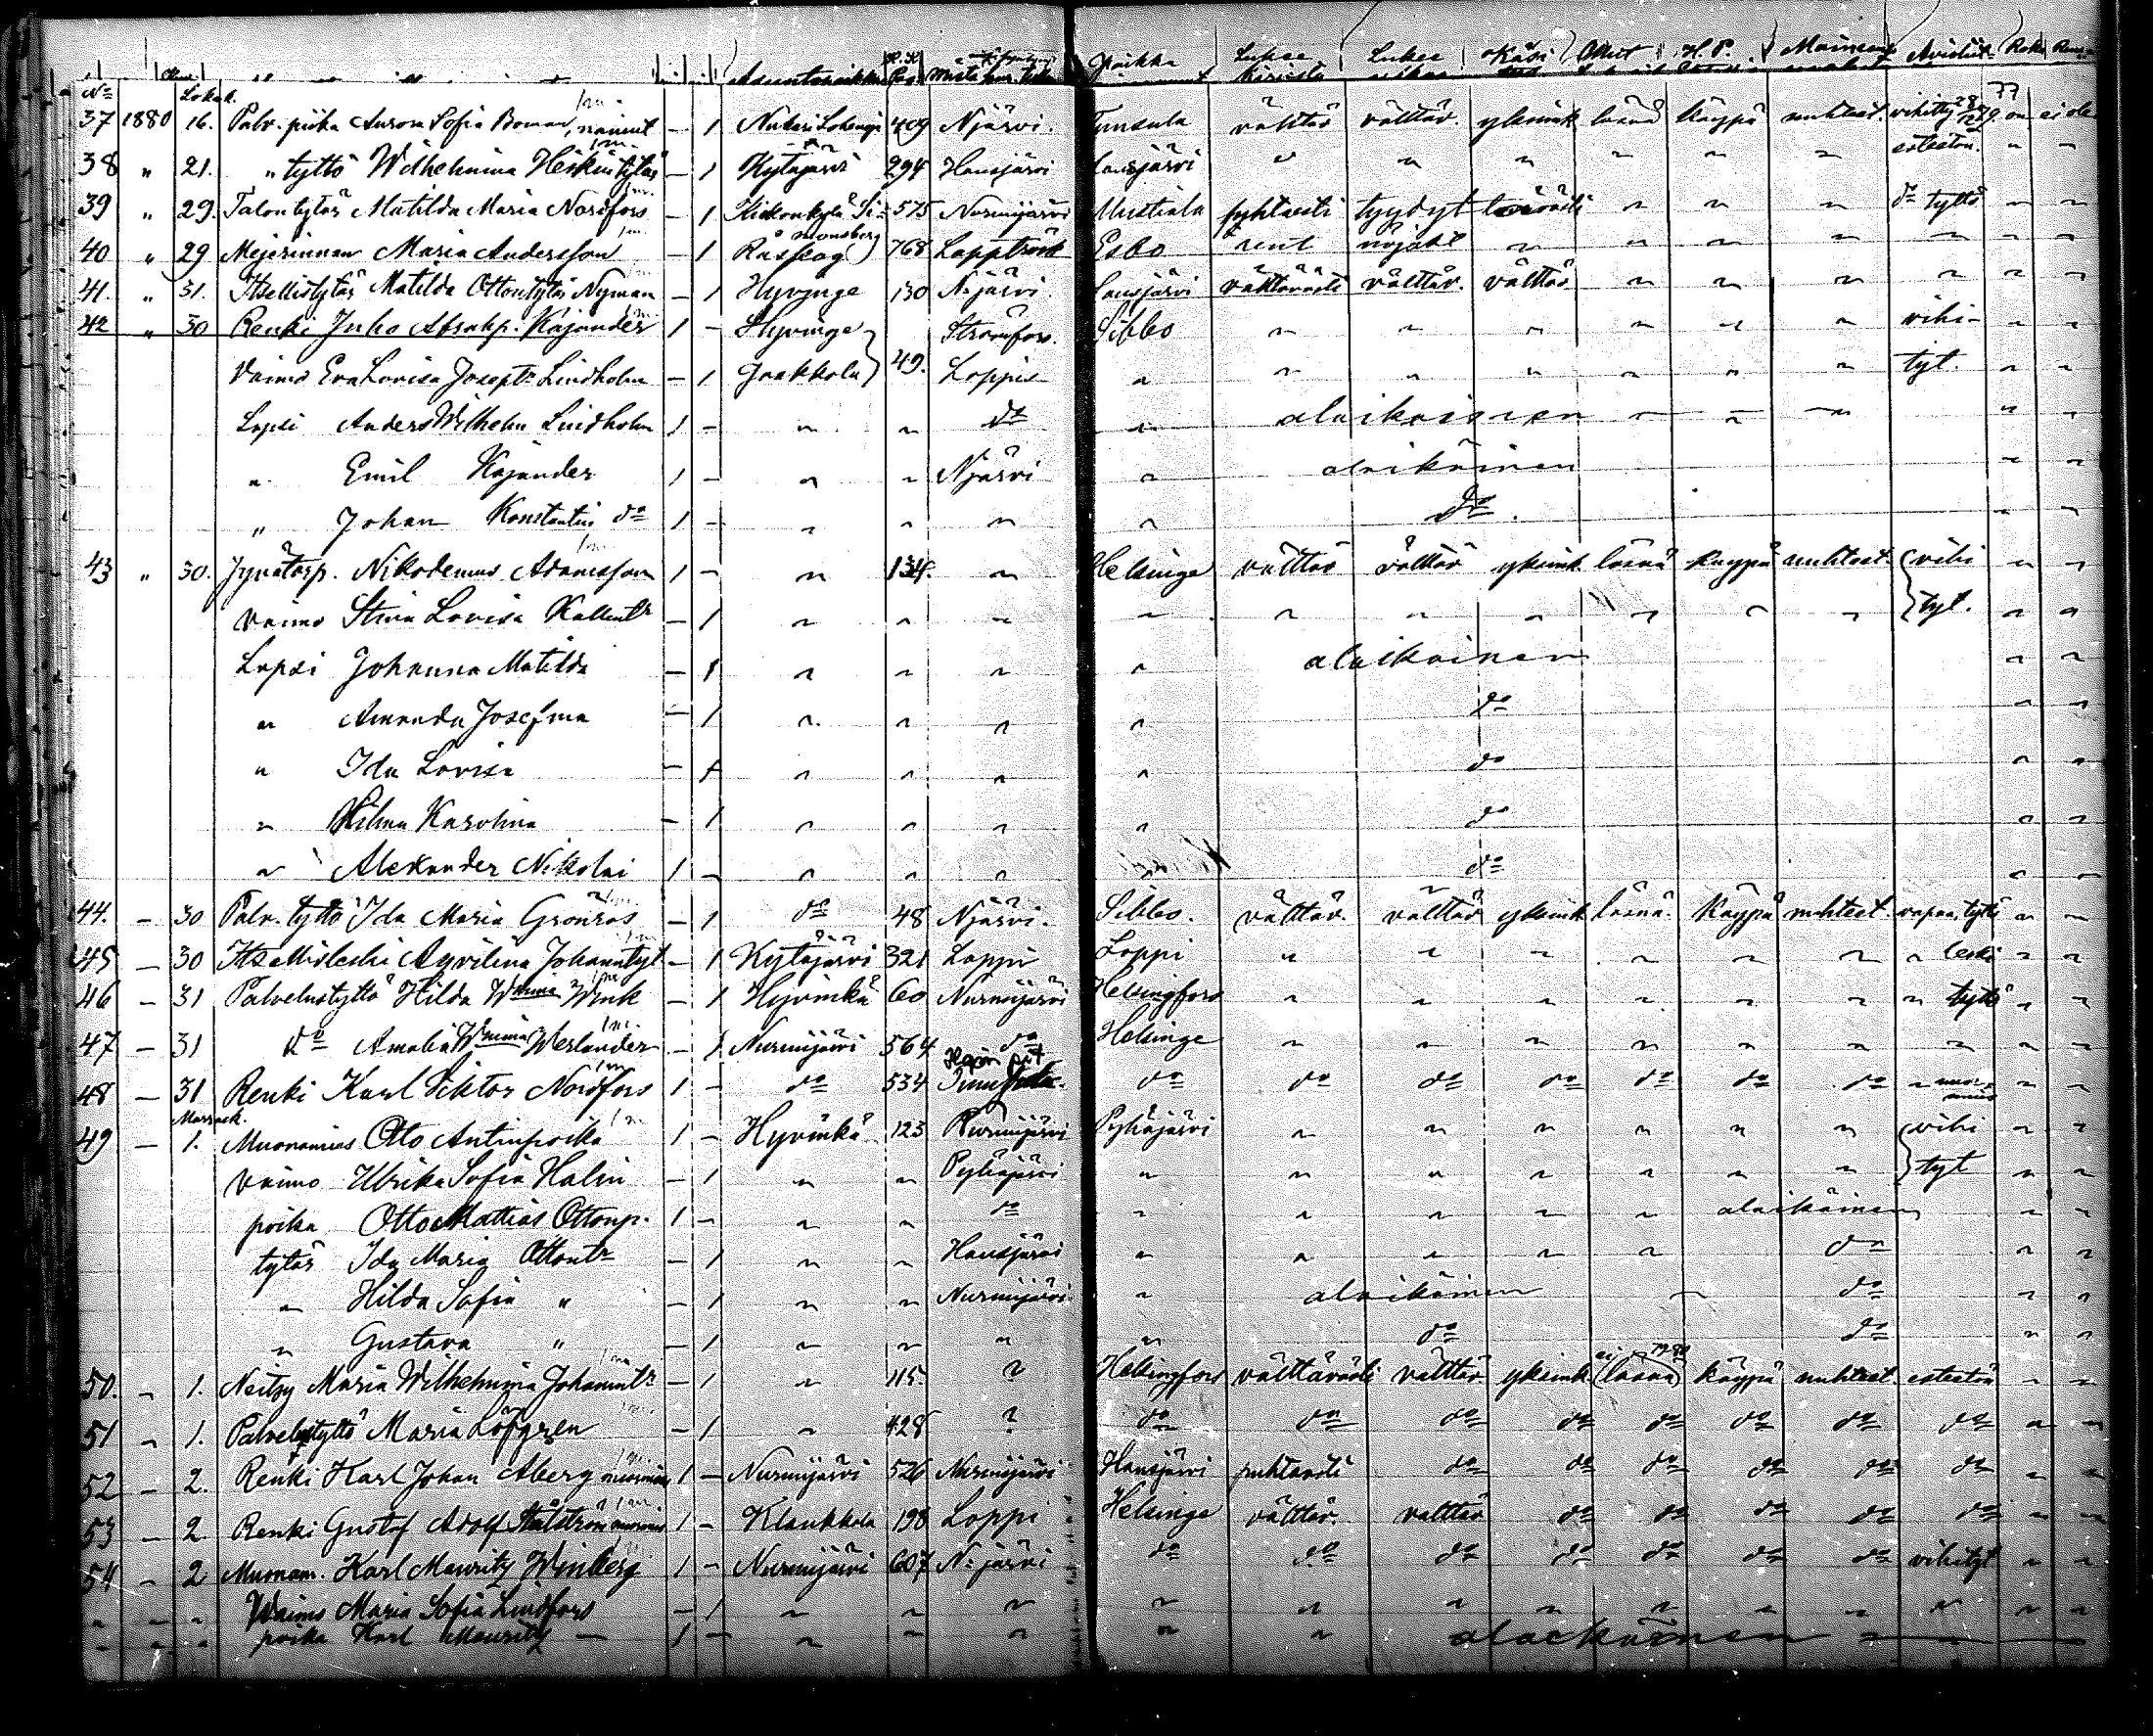 Asuntopaikka Paikka Lukee kirjasta Lukee Käsi H. P. Mainen Avioliit. Rok.
No Lokak.
37 1880 16. Palv. piika Aurora Sofia Boman, nainut — 1 409 Njärvi. Tuusula välttäv välttäv. yksink läsnä käypä nuhteet. vihitty on ei ole
38 " 21. " tyttö Wilhelmina Heikintytär — 1 Kytäjärvi 294 Hausjärvi Hausjärvi " " " " " " esteetön. " "
39 " 29. Talontytär Matilda Maria Nordfors — 1 575 Nurmijärvi Mustiala puhtaasti tyydyt " " " do tyttö " "
40 " 29 Mejerinnan Maria Andersson — 1 768 Lappträsk Esbo rent nöjakt " " " " " " "
41. " 31. Itsellistytär Matilda Ottontytär Nyman — 1 Hyvinge 130 N:järvi. Lausjärvi välttävästi välttäv. välttäv " " " " " "
42 " 30 Renki Juho Abrahp. Kajander 1 — Hyvinge Strömfors. Sibbo " " " " " " vihi- " "
Vaimo Eva Lovisa Josept. Lindholm — 1 Jaakkola 49. Loppis " " " " " " " tyt. " "
Lapsi Anders Wilhelm Lindholm 1 — " " do " alaikäinen — — — " "
" Emil Kajander 1 — " " Njärvi " alaikäinen " "
" Johan Konstantin do 1 — " " " " do. " "
43 " 30. Nikodemus Adamsson 1 — " 134. " Helsinge välttäv välttäv yksink läsnä käypä nuhteet. vihi " "
vaimo Stina Lovisa Kallentr — 1 " " " " " " " " " " tyt. " "
Lapsi Johanna Matilda — 1 " " " " alaikäinen " "
" Amanda Josefina — 1 " " " " do " "
" Ida Lovisa — 1 " " " " do " "
" Wilma Karolina — 1 " " " " do " "
" Alexander Nikolai 1 — " " " do " "
44. — 30 Palv. tyttö Ida Maria Grönros — 1 do 48 Njärvi. Sibbo. välttäv. välttäv yksink läsnä. käypä nuhteet. vapaa, tyttö " "
45 — 30 Itsellisleski Johanntyt — 1 Kytäjärvi 321 Loppi Loppi " " " " " " " leski " "
46 — 31 Palvelustyttö Hilda Wmina Wink — 1 Hyvinkä 60 Nurmijärvi Helsingfors " " " " " " " tyttö " "
47 — 31 do Amalia Wmina Weslander — 1 Nurmijärvi 564 do Helsinge " " " " " " " " "
48 — 31 Renki Karl Viktor Nordfors 1 — do 534 do do do do do do do " "
Marrask.
49 — 1. Muonamies Otto Antinpoika 1 — Hyvinkä 123 Nurmijärvi Pyhäjärvi " " " " " " vihi " "
Vaimo Ulrika Sofia Halin — 1 " " Pyhäjärvi " " " " " " " tyt " "
poika Otto Mattias Ottonp. 1 — " " do " " " " " alaikäinen " "
tytär Ida Maria Ottontr — 1 " " Hausjärvi " " " " " do " "
" Hilda Sofia " — 1 " " Nurmijärvi " alaikäinen " do " "
" Gustava " — 1 " " " " do do " "
50. " 1. Neitsy Maria Wilhelmina Johanntr — 1 " 115. ? Helsingfors välttävästi välttäv. yksink ei (läsnä) käypä nuhteet. esteetön " "
51 " 1. Palvelustyttö Maria Löfgren — 1 " 428 ? do do do do do do do do " "
52 — 2. Renki Karl Johan Åberg 1 — Nurmijärvi 526 Nurmijärvi Hausjärvi puhtaasti do do do do do do " "
53 — 2 Renki Gustof Adolf Stålström 1 — Klaukkala 198 Loppi Helsinge välttäv. välttäv do do do do do " "
54 — 2 Muonam. Karl Mauritz Winberg 1 — Nurmijärvi 607 N:järvi do do do do do do do vihityt " "
" — " Waimo Maria Sofia Lindfors — 1 " " " " " " " " " " " " "
" " " poika Karl Mauritz — 1 — " " " " " alaikäinen " — —